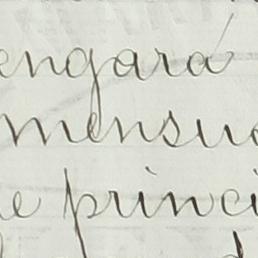 engará
mensua
e princi